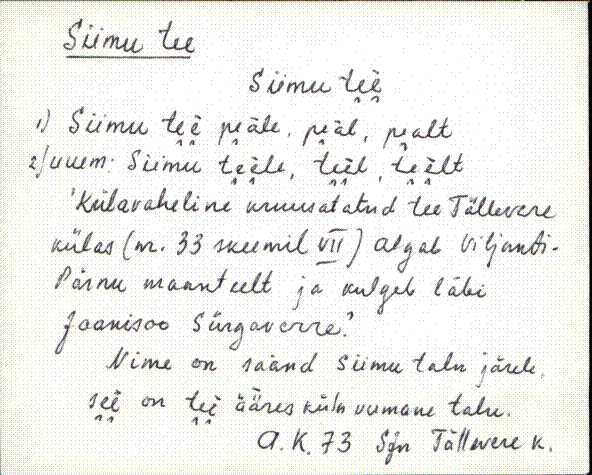 Siimu tee
Siimu te̮è̮
1) Siimu te̮è̮ pe̮äle, pe̮äl, pe̮alt
2) uuem: Siimu te̮è̮le, te̮è̮l, te̮è̮lt
'Külavaheline kruusatatud tee Tällevere
külas (nr. 33 skeemil VII) algab Viljandi-
Pärnu maanteelt ja kulgeb läbi
Jaanisoo Sürgaverre.'
Nime on saand Siimu talu järele,
se̮è̮ on te̮è̮ ääres külu viimane talu.
A. K. 73 Sjn Tällevere k.